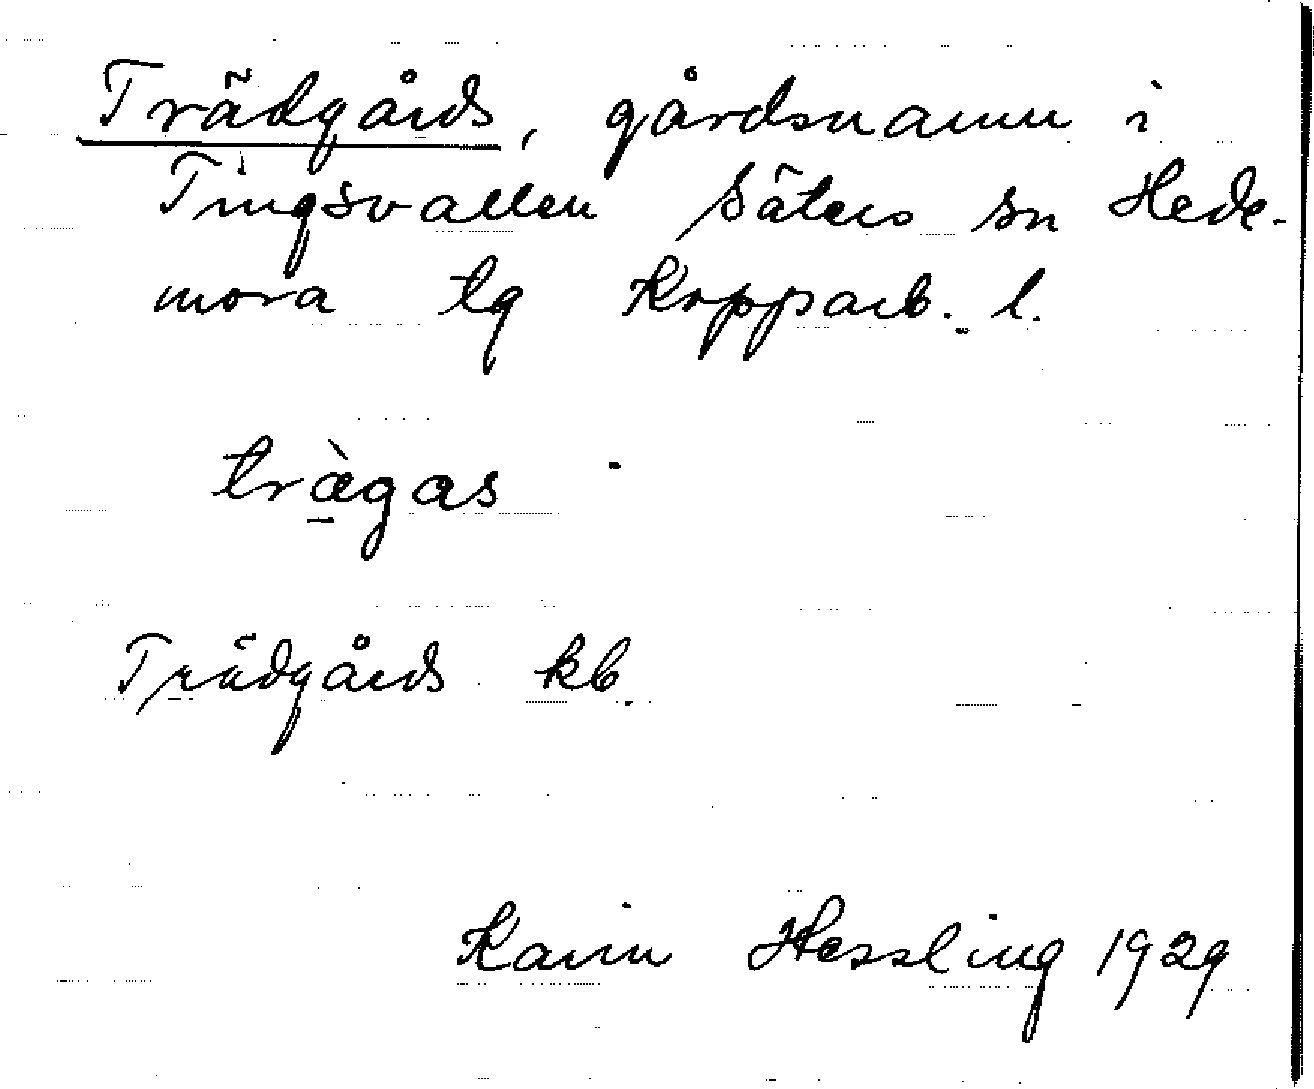 Trädgårds, gårdsnamn i
Tingsvallen Säters sn Hede-
mora tg Kopparb. l.
trä̀gas
Trädgårds kb.
Karin Hessling 1929